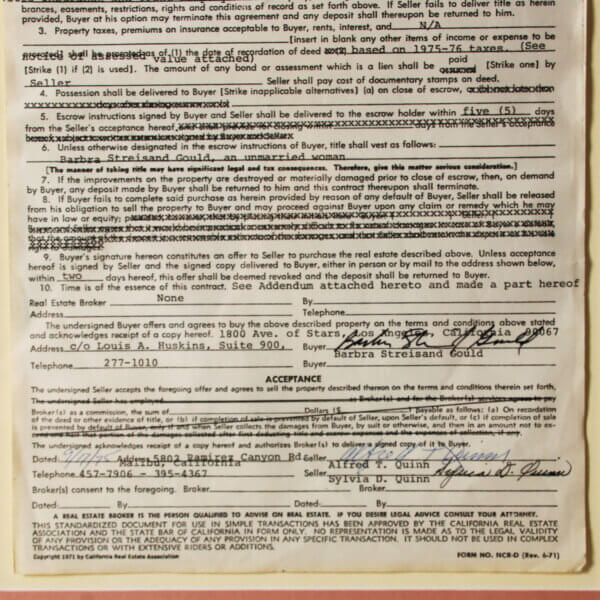 brances, easements, restrictions, rights and conditions of record as set forth above. If Seller fails to deliver title as herein
provided, Buyer at his option may terminate this agreement and any deposit shall thereupon be returned to him.
3. Property taxes, premiums on insurance acceptable to Buyer, rents, interest, and N/A
[insert in blank any other items of income or expense to be
prorated] shall be prorated as of (1) the date of recordation of deed based on 1975-76 taxes. (See
notice of assessed value attached)
[Strike (1) if (2) is used]. The amount of any bond or assessment which is a lien shall be paid [Strike one] by
Seller Seller shall pay cost of documentary stamps on deed.
4. Possession shall be delivered to Buyer [Strike inapplicable alternatives] (a) on close of escrow,
5. Escrow instructions signed by Buyer and Seller shall be delivered to the escrow holder within five (5) days
from the Seller's acceptance hereof
6. Unless otherwise designated in the escrow instructions of Buyer, title shall vest as follows:
Barbra Streisand Gould, an unmarried woman
[The manner of taking title may have significant legal and tax consequences. Therefore, give this matter serious consideration.]
7. If the improvements on the property are destroyed or materially damaged prior to close of escrow, then, on demand
by Buyer, any deposit made by Buyer shall be returned to him and this contract thereupon shall terminate.
8. If Buyer fails to complete said purchase as herein provided by reason of any default of Buyer, Seller shall be released
from his obligation to sell the property to Buyer and may proceed against Buyer upon any claim or remedy which he may
have in law or equity;
9. Buyer's signature hereon constitutes an offer to Seller to purchase the real estate described above. Unless acceptance
hereof is signed by Seller and the signed copy delivered to Buyer, either in person or by mail to the address shown below,
within two days hereof, this offer shall be deemed revoked and the deposit shall be returned to Buyer.
10. Time is of the essence of this contract. See Addendum attached hereto and made a part hereof
Real Estate Broker None By
Address Telephone
The undersigned Buyer offers and agrees to buy the above described property on the terms and conditions above stated
and acknowledges receipt of a copy hereof. 1800 Ave. of Stars, Los Angeles, California 90067
Address c/o Louis A. Huskins, Suite 900, Buyer
Barbra Streisand Gould
Telephone 277-1010 Buyer
ACCEPTANCE
The undersigned Seller accepts the foregoing offer and agrees to sell the property described thereon on the terms and conditions therein set forth,
The undersigned Seller has employed as Broker(s) and for the Broker(s) services agrees to pay
Broker(s) as a commission, the sum of Dollars ($ ) payable as follows: (a) On recordation
of the deed or other evidence of title, or (b) if completion of sale is prevented by default of Seller, upon Seller's default, or (c) if completion of sale
is prevented by default of Buyer, only if and when Seller collects the damages from Buyer, by suit or otherwise, and then in an amount not to ex-
ceed one half that portion of the damages collected after first deducting title and escrow expenses and the expenses of collection, if any.
The undersigned acknowledges receipt of a copy hereof and authorizes Broker(s) to deliver a signed copy of it to Buyer.
Dated: Address 5802 Ramirez Canyon Rd Seller
Malibu, California Alfred T. Quinn
Telephone 457-7906 - 395-4367 Seller Sylvia D. Quinn
Sylvia D. Quinn
Broker(s) consent to the foregoing. Broker Broker
Dated: By Dated: By
A REAL ESTATE BROKER IS THE PERSON QUALIFIED TO ADVISE ON REAL ESTATE. IF YOU DESIRE LEGAL ADVICE CONSULT YOUR ATTORNEY.
THIS STANDARDIZED DOCUMENT FOR USE IN SIMPLE TRANSACTIONS HAS BEEN APPROVED BY THE CALIFORNIA REAL ESTATE
ASSOCIATION AND THE STATE BAR OF CALIFORNIA IN FORM ONLY. NO REPRESENTATION IS MADE AS TO THE LEGAL VALIDITY
OF ANY PROVISION OR THE ADEQUACY OF ANY PROVISION IN ANY SPECIFIC TRANSACTION. IT SHOULD NOT BE USED IN COMPLEX
TRANSACTIONS OR WITH EXTENSIVE RIDERS OR ADDITIONS.
Copyright 1971 by California Real Estate Association FORM NO. NCR-D (Rev. 6-71)